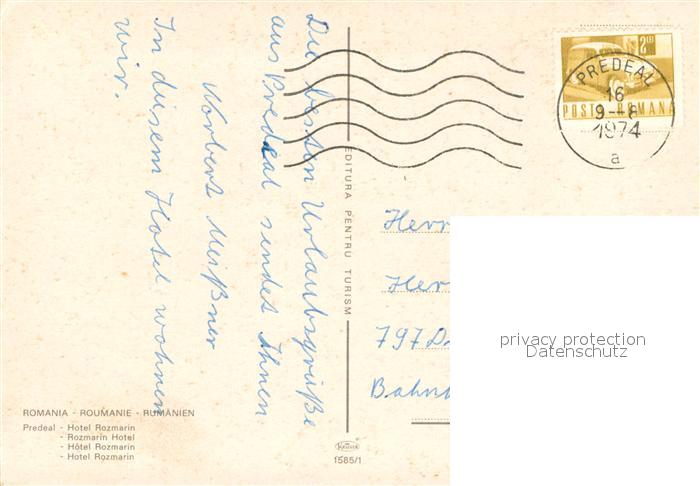 Die besten Urlaubsgrüße
aus Predeal sendet Ihnen
Norbert Meißner
In diesem Hotel wohnen
wir.
ROMANIA - ROUMANIE - RUMÄNIEN
Predeal - Hotel Rozmarin
- Rozmarin Hotel
- Hôtel Rozmarin
- Hotel Rozmarin
EDITURA PENTRU TURISM
1585/1
2 LEI
POSTA ROMANA
PREDEAL
16
9--8
1974
a
Herr
Herr
797
Bahnh
privacy protection
Datenschutz